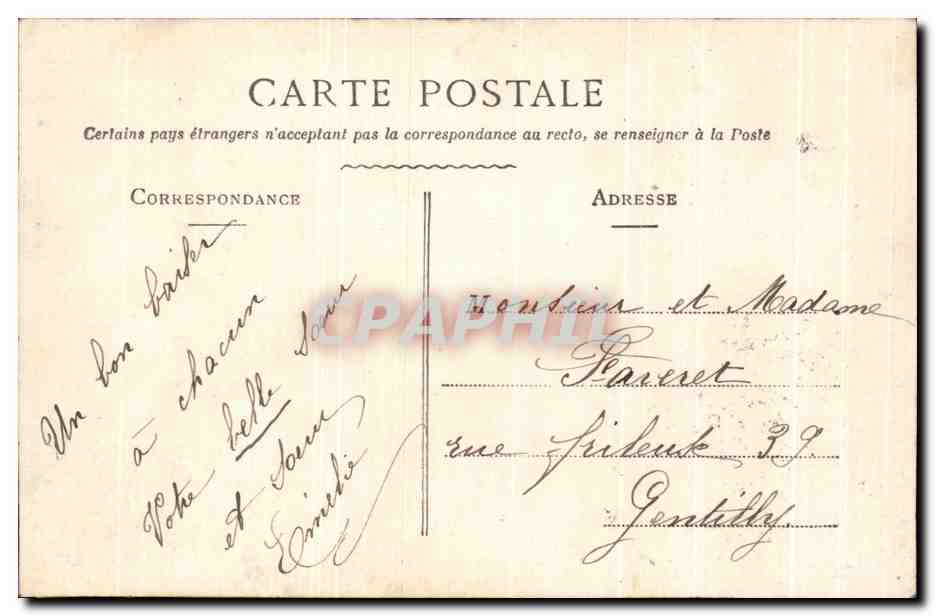 CARTE POSTALE
Certains pays étrangers n'acceptant pas la correspondance au recto, se renseigner à la Poste
CORRESPONDANCE
Un bon baiser
à chacun
Votre belle soeur
et soeur
Emilie
ADRESSE
Monsieur et Madame
Faveret
rue frileuse 39
Gentilly.
CPAPHIL